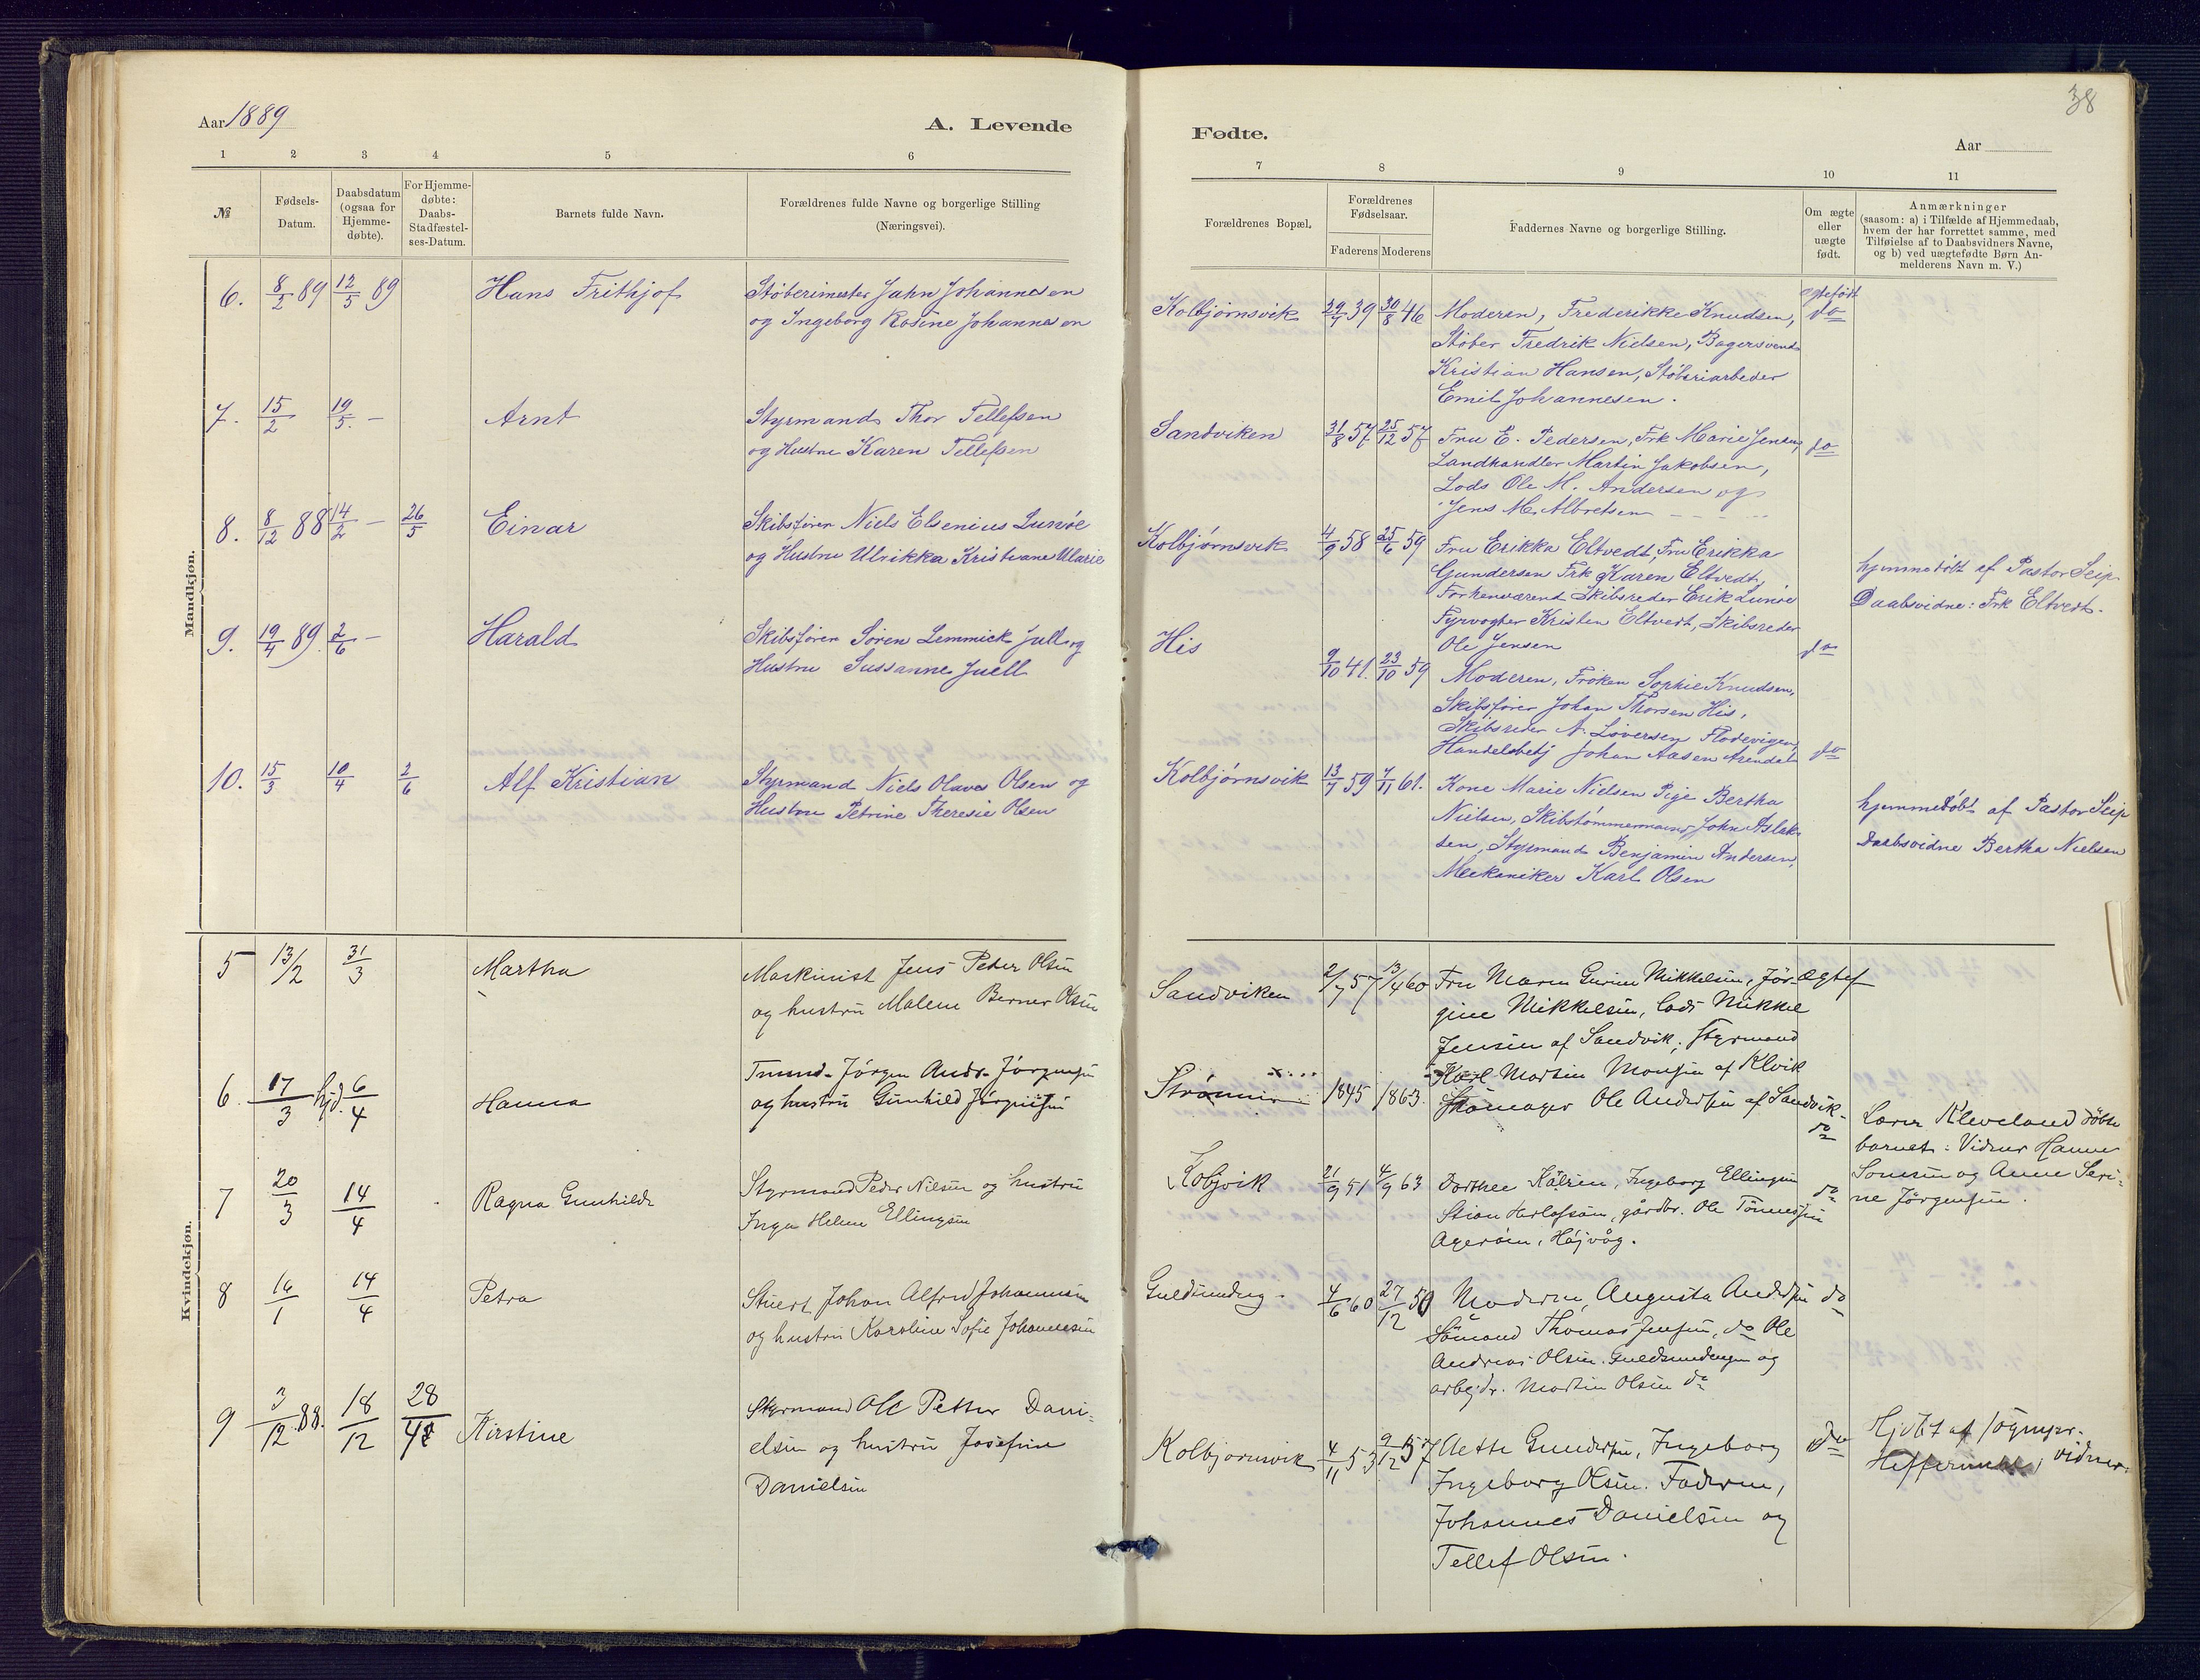 Aar 1889
A. Levende
1 2 3 4 5 6
№
Fødsels-
Datum.
Daabsdatum
(ogsaa for
Hjemme-
døbte).
For Hjemme-
døbte:
Daabs-
Stadfæstel-
ses-Datum.
Barnets fulde Navn.
Forældrenes fulde Navne og borgerlige Stilling
(Næringsvei).
Mandkjøn.
6. 8/2 89 12/5 89 Hans Frithjof Støberimester Jahn Johannesen
og Ingeborg Rosine Johannesen
7. 15/2 19/5. – Arnt Styrmand Thor Tellefsen
og Hustru Karen Tellefsen
8. 8/12 88 14/2 – 26/5 Einar Skibsfører Niels Elsenius Lunøe
og Hustru Ulrikka Kristiane Marie
9. 19/4 89. 2/6 – Harald Skibsfører Søren Lemmick Juell og
Hustru Sussanne Juell
10. 15/3 10/4 2/6 Alf Kristian Styrmand Niels Olaves Olsen og
Hustru Petrine Theresie Olsen
Kvindekjøn.
5 13/2 31/3 Martha Maskinist Jens Peter Olsen
og hustru Malene Berner Olsen
6. 17/3 hjd. 6/4 Hanna Tmmd. Jörgen Andr. Jörgensen
og hustru Gunhild Jörgensen
7 20/3 14/4 Ragna Gunhilde Styrmand Peder Nilsen og hustru
Inga Helene Ellingsen
8 16/1 14/4 Petra Stuert Johan Alfred Johannesen
og hustru Karoline Sofie Johannesen
9 3/12 88. 18/12 28/4 Kirstine Styrmand Ole Petter Dani-
elsen og hustru Josefine
Danielsen
38
Fødte.
Aar
7 8 9 10 11
Forældrenes Bopæl.
Forældrenes
Fødselsaar.
Faderens Moderens
Faddernes Navne og borgerlige Stilling.
Om ægte
eller
uægte
født.
Anmærkninger
(saasom: a) i Tilfælde af Hjemmedaab,
hvem der har forrettet samme, med
Tilføielse af to Daabsvidners Navne,
og b) ved uægtefødte Børn An-
melderens Navn m. V.)
ægtefødt
Kolbjørnsvik 30/8 46 Moderen, Frederikke Knudsen, do
Støber Fredrik Nielsen, Bagersvend
Kristian Hansen, Støberiarbeder
Emil Johannesen.
Sandviken 31/8 57 25/12 57 Fru E. Pedersen, Frk Marie Jensen, do
Landhandler Martin Jakobsen,
Lods Ole M. Andersen og
Jens M. Albretsen
Kolbjørnsvik 4/9 58 25/6 59 Fru Erikka Eltvedt, Fru Erikka
Gundersen Frk Karen Eltvedt,
Forhenværend Skibsreder Erik Lunøe
Fyrvogter Kristen Eltvedt, Skibsreder
Ole Jensen do
hjemmedøbt af Pastor Seip
Daabsvidne: Frk Eltvedt.
His 9/10 41. 23/10 59 Moderen, Frøken Sophie Knudsen,
Skibsfører Johan Thorsen His,
Skibsreder N. Löversen Flødevigen,
Handelsbetj Johan Aasen Arendal do
Kolbjørnsvik 13/7 59 7/11 61. Kone Marie Nielsen Pige Bertha
Nielsen, Skibstømmermand John Aslak-
sen, Styrmand Benjamin Andersen,
Mekaniker Karl Olsen
hjemmedøbt af Pastor Seip
Daabsvidne Bertha Nielsen
Sandviken 2/7 57 13/4 60 Fru Maren Gurine Mikkelsen, Jör- Ægtef
gine Mikkelsen, lods Mikkel
Jensen af Sandvik, Styrmand
Karl Martin Monsen af Klvik
Skomager Ole Andersen af Sandvik.
1845 1863. do
Lærer Kleveland döbte
barnet: Vidner Hanne
Sonesen og Anne Seri-
ne Jörgensen.
Kolbjvik 21/9 51 4/9 63 Dorthee Ingeborg Ellingsen do
Stian Herlofsen, gårdbr. Ole Tönnesen
Ageröen, Højvåg.
Guldsmdeng. 4/6 60 27/12 50 Moderen, Augusta Andersen do
Sömand Thomas Jensen, do Ole
Andreas Olsen. Guldsmdengen og
arbejdr. Martin Olsen do
Kolbjornsvik 4/11 53 9/12 57 Aette Gundersen, Ingeborg do
Ingeborg Olsen. Faderen,
Johannes Danielsen og
Tellef Olsen.
Hjdbt af sognepr.
vidner.